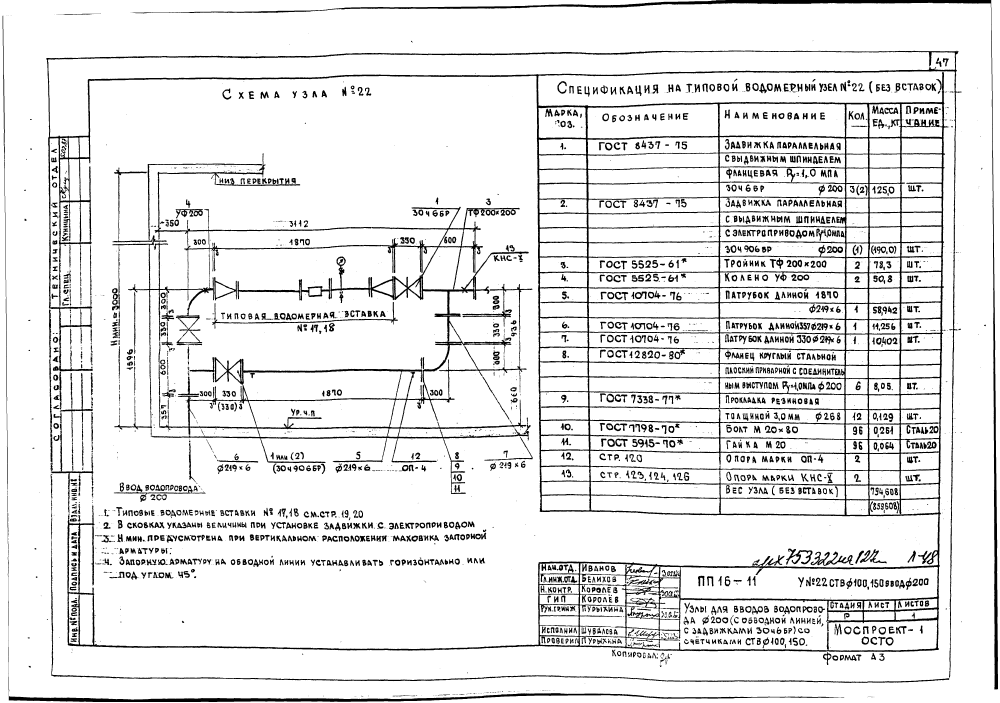 47
Схема узла №22
Низ перекрытия
4
УФ200
3112
1
30Ч6БР
3
ТФ200×200
350
300
1870
350
600
13
КНС-Х
Типовая водомерная вставка
№17,18
Н мин.=3000
1596
390
330
600
357
300
330
936
600
660
300
330
(330)
1870
300
Ур.ч.п
6
Ø219×6
1 или (2)
(30Ч906БР)
5
Ø219×6
12
ОП-4
8
9
10
11
7
Ø219×6
Ввод водопровода
Ø200
1. Типовые водомерные вставки №17,18 см.стр.19,20
2. В скобках указаны величины при установке задвижки с электроприводом
3. Н мин. предусмотрена при вертикальном расположения маховика запорной
арматуры.
4. Запорную арматуру на обводной линии устанавливать горизонтально или
под углом 45°.
Спецификация на типовой водомерный узел №22 (без вставок)
Марка, поз. Обозначение Наименование Кол. Масса ед., кг Приме-чание
1. ГОСТ 8437-75 Задвижка параллельная
с выдвижным шпинделем
фланцевая Ру=1,0 мпа
30Ч6БР Ø200 3(2) 125,0 шт.
2. ГОСТ 8437-75 Задвижка параллельная
с выдвижным шпинделем
с электроприводом Ру=1,0мпа
30Ч906БР Ø200 (1) (190,0) шт.
3. ГОСТ 5525-61* Тройник ТФ 200×200 2 78,3 шт.
4. ГОСТ 5525-61* Колено УФ 200 2 50,8 шт.
5. ГОСТ 10704-76 Патрубок длиной 1870
Ø219×6 1 58,942 шт.
6. ГОСТ 10704-76 Патрубок длиной 357 Ø219×6 1 11,256 шт.
7. ГОСТ 10704-76 Патрубок длиной 330 Ø219×6 1 10,402 шт.
8. ГОСТ 12820-80* Фланец круглый стальной
плоский приварной с соединитель
ным выступом Ру=1,0мпа Ø200 6 8,05 шт.
9. ГОСТ 7338-77* Прокладка резиновая
толщиной 3,0 мм Ø268 12 0,129 шт.
10. ГОСТ 7798-70* Болт М 20×80 96 0,261 Сталь20
11. ГОСТ 5915-70* Гайка М 20 96 0,064 Сталь20
12. Стр. 120 Опора марки ОП-4 2 шт.
13. Стр. 123, 124, 126 Опора марки КНС-Х 2 шт.
Вес узла (без вставок) 794,608
(859,608)
арх 753322 ил 122 Л-48
Нач.отд. Иванов
Гл.инж.отд. Белихов
Н.контр. Королёв
ГИП Королёв
Рук.гр.инж Пурыжина
Исполнил Шувалова
Проверил Пурыжина
ПП 16-11 У№22 СТВ Ø100,150 ввод Ø200
Узлы для вводов водопрово-
да Ø200 (с обводной линией,
с задвижками 30Ч6БР) со
счётчиками СТВ Ø100, 150.
Стадия Лист Листов
Р 1
Моспроект-1
ОСТО
Копировал:
Формат А3
Согласовано:
Технический отдел
Гл.спец. Куницина
Взам.инв.№
Подпись и дата
Инв.№подл.